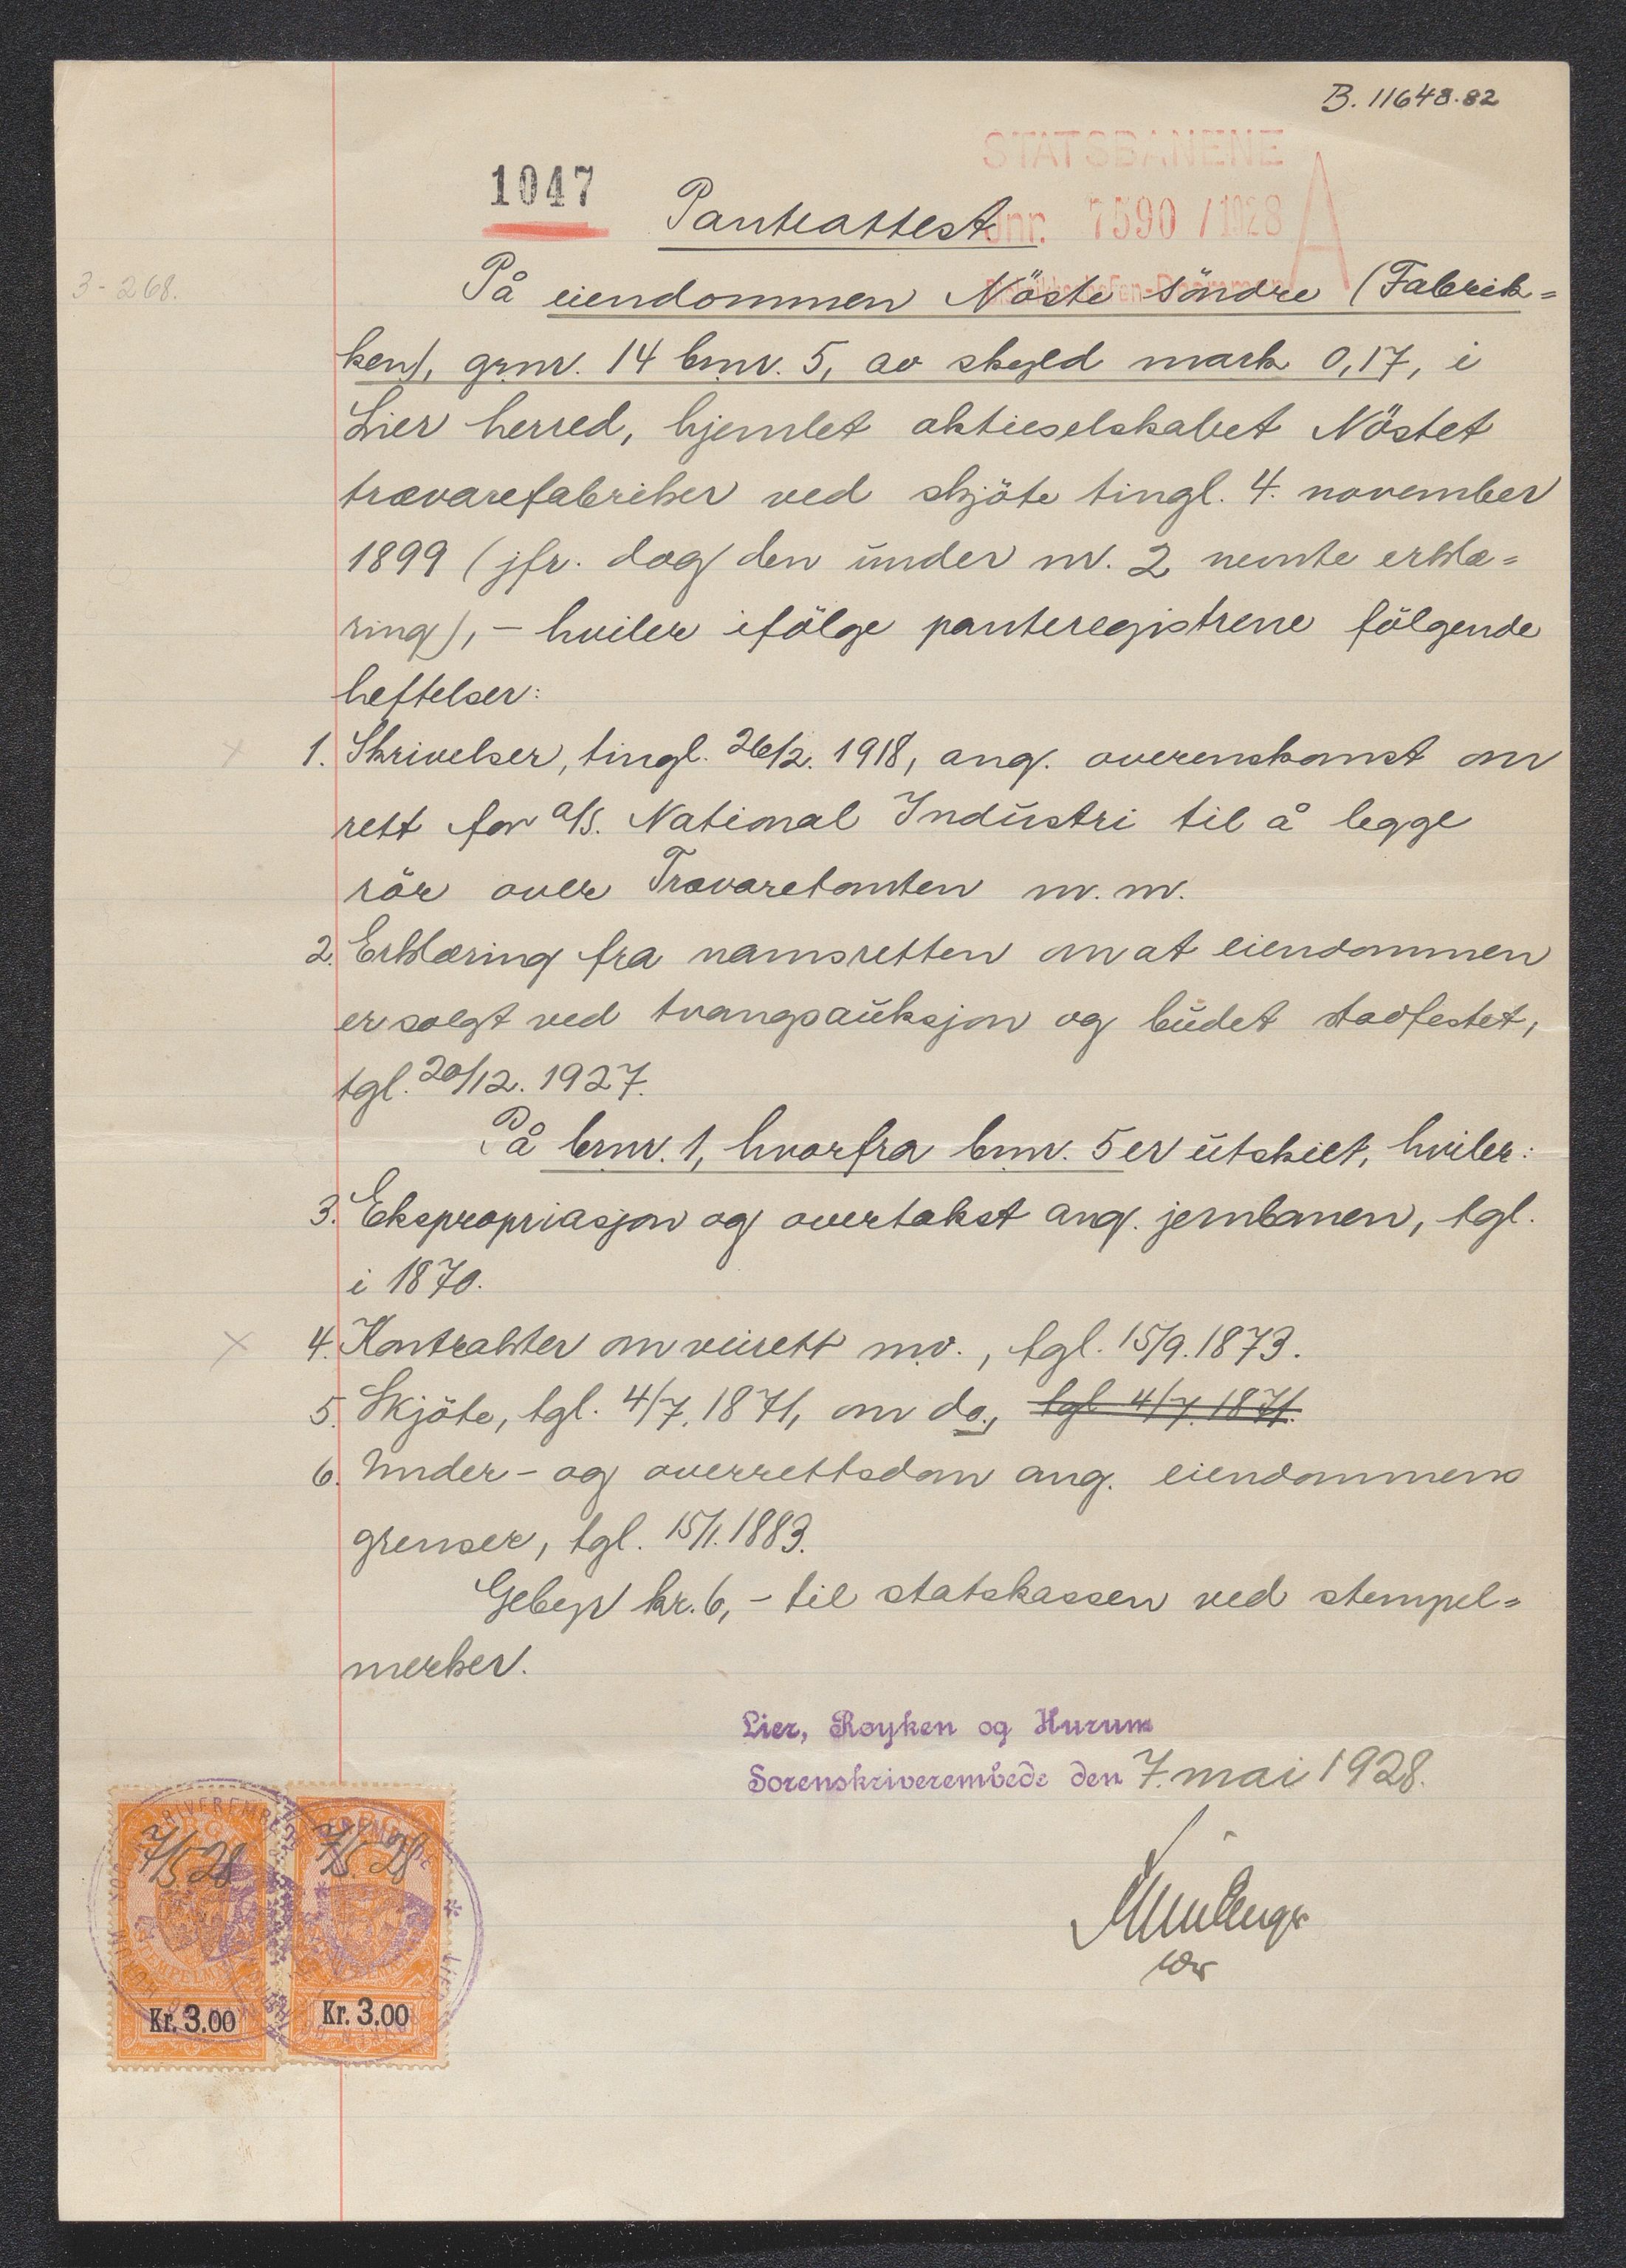 B. 11648.82
STATSBANENE
1047
Panteattest
Jnr. 7590 / 1928 A
3-268.
På eiendommen Nöste söndre (Fabrik=
ken), grnr. 14 bnr. 5, av skyld mark 0,17, i
Lier herred, hjemlet aktieselskabet Nöstet
trævarefabriker ved skjöte tingl. 4. november
1899 (jfr. dog den under nr. 2 nevnte erklæ=
ring), - hviler ifölge panteregistrene fölgende
heftelser:
1. Skrivelser, tingl. 26/2. 1918, ang. overenskomst om
rett for a/s. National Industri til å legge
rör over Trævaretomten m.m.
2. Erklæring fra namsretten om at eiendommen
er solgt ved tvangsauksjon og budet stadfestet,
tgl. 20/12. 1927.
På bnr. 1, hvorfra bnr. 5 er utskilt, hviler:
3. Ekspropriasjon og overtakst ang. jernbanen, tgl.
i 1870.
4. Kontrakter om veirett m.v., tgl. 15/9. 1873.
5. Skjöte, tgl. 4/7. 1871, om do., tgl 4/7. 1871.
6. Under- og overrettsdom ang. eiendommens
grenser, tgl. 15/1. 1883.
Gebyr kr. 6,- til statskassen ved stempel=
merker.
Lier, Royken og Hurum
Sorenskriverembede den 7. mai 1928.
7/5 28 7/5. 28
Kr. 3.00 Kr. 3.00